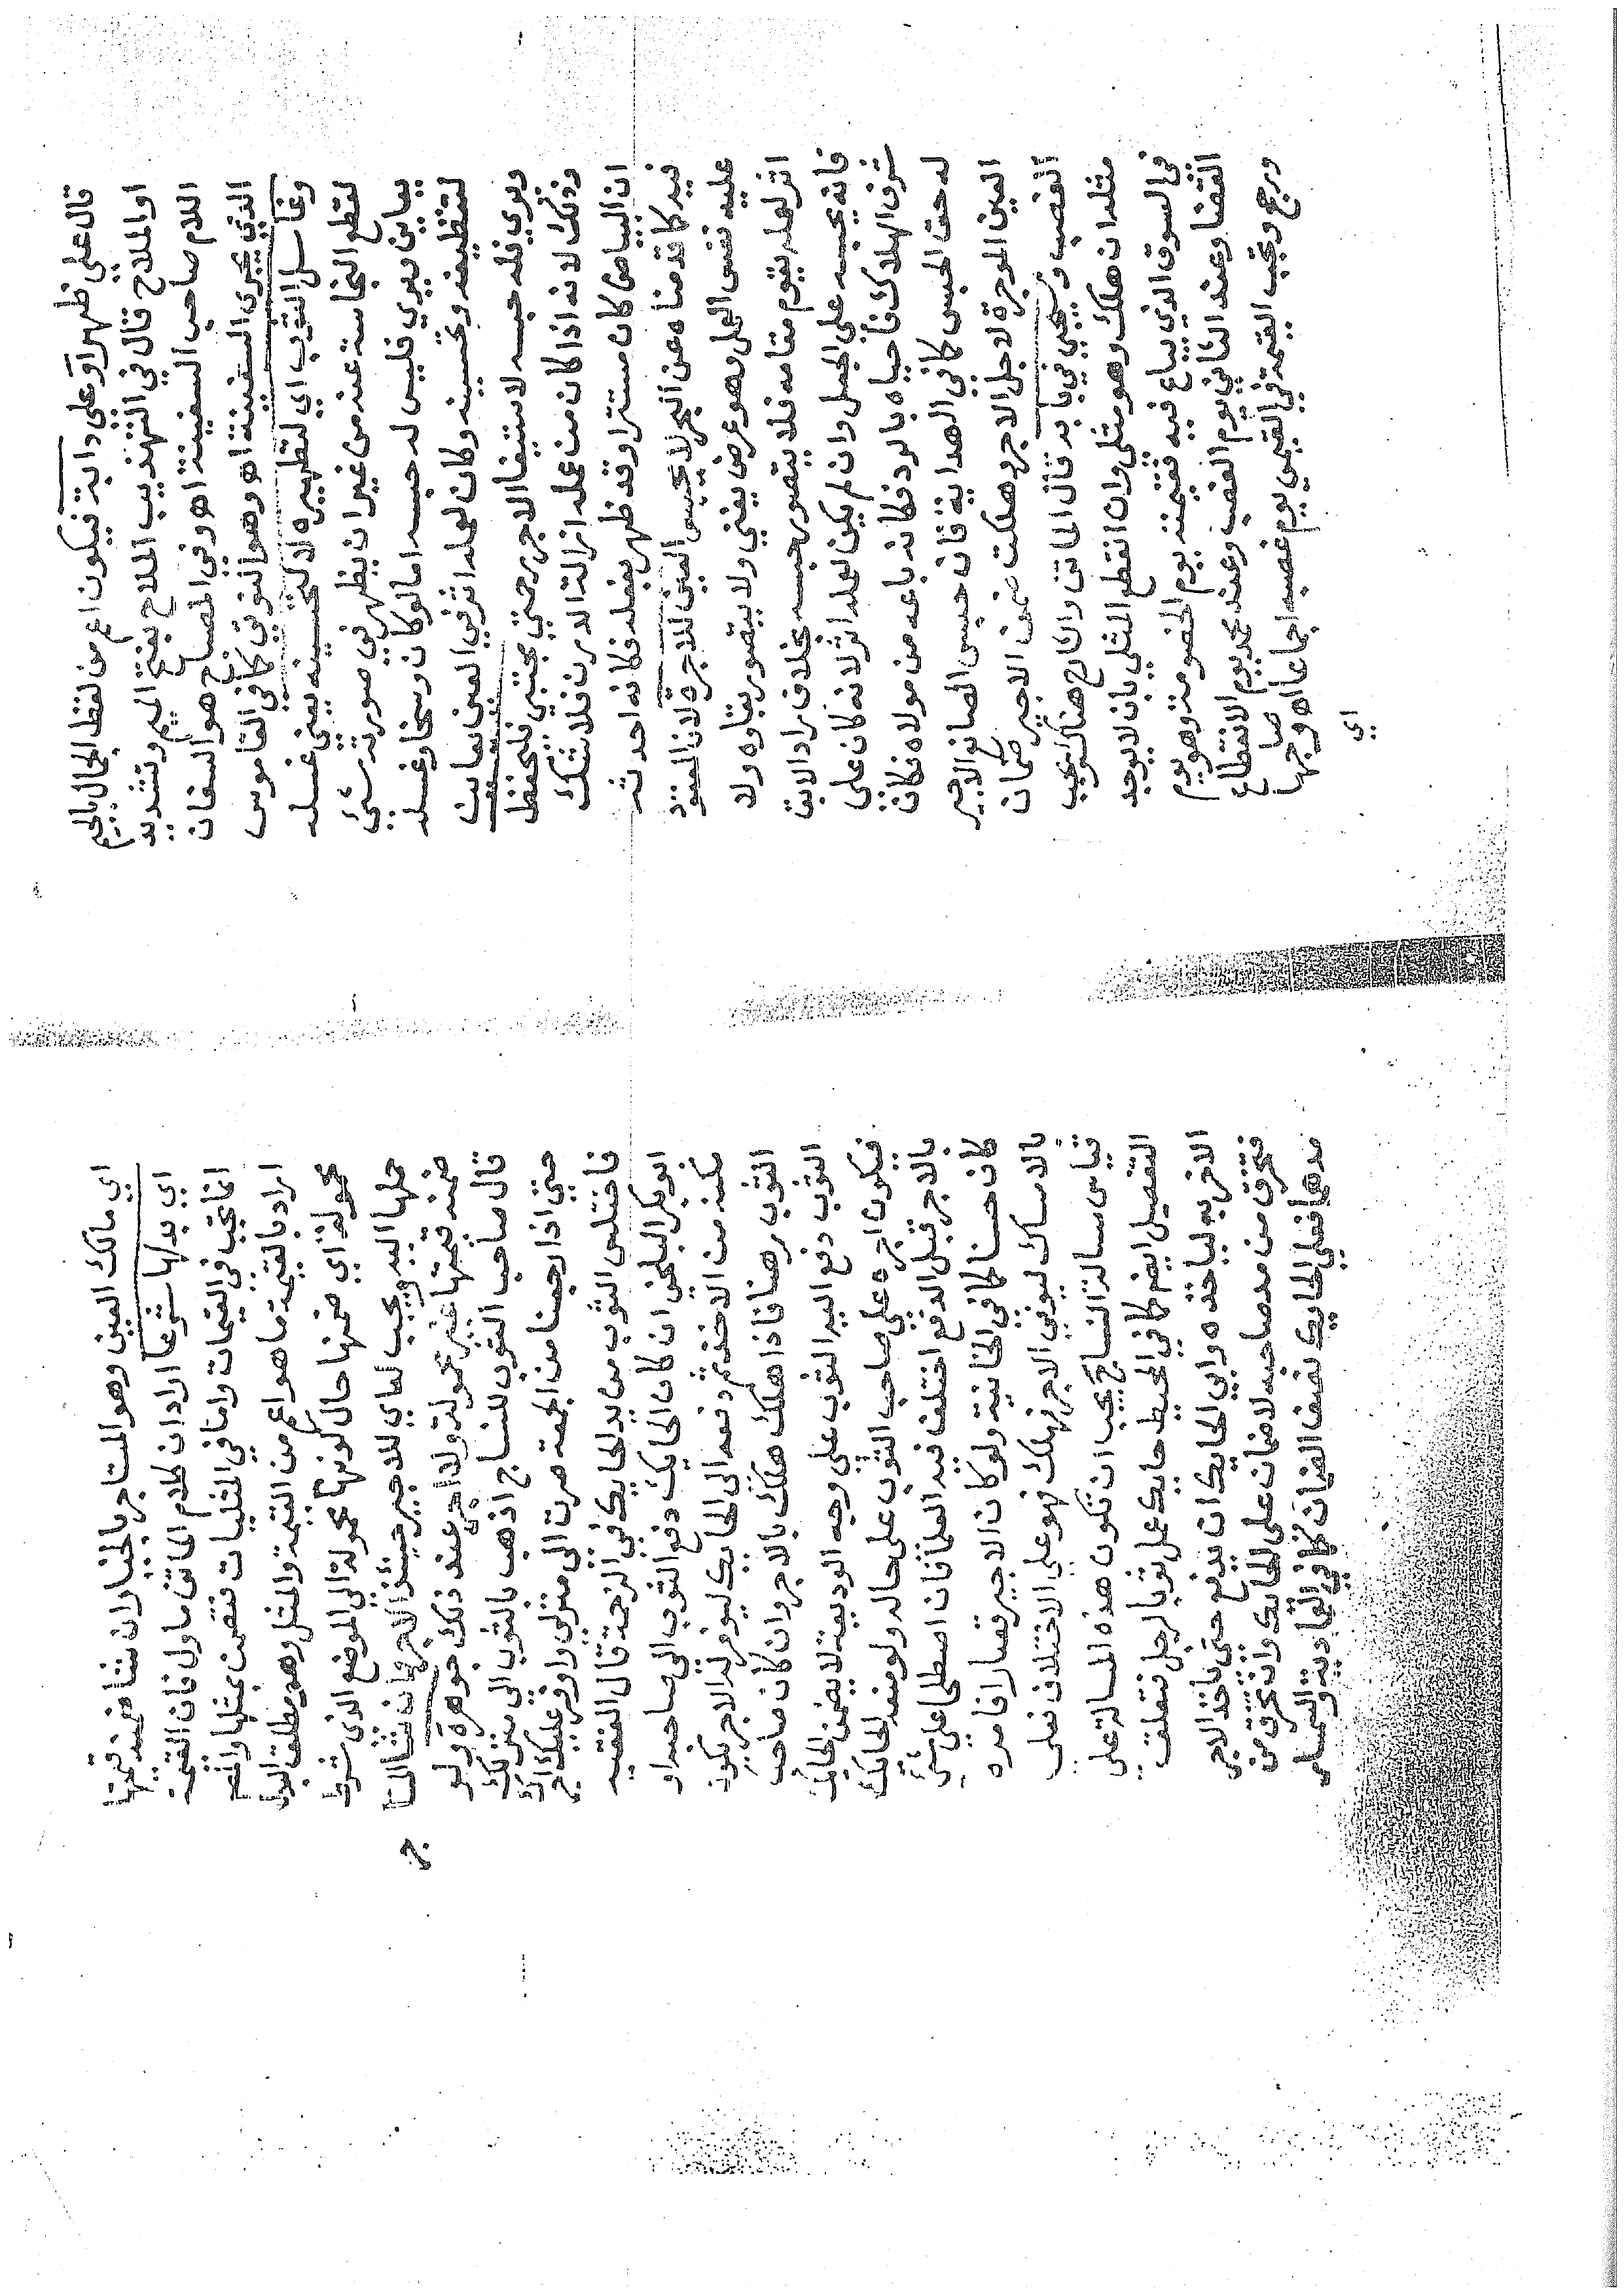 قال علي ظهر او علي دابة فيكون اعم من لفظ الجمال بالجيم
او الملاح قال في التهذيب الملاح بفتح الميم وتشديد
اللام صاحب السفينة اه وفي المصباح هو السفان
الذي يجري السفينة اه وهو النوتي كما في القاموس
وغاسل الثوب اي لتطهيره لا لتحسينه يعني غسله
لقطع النجاسة عنه من غير ان يظهر في صورته شيئ
يعاين ويري فليس له حبسه اما لو كان وسخا وغسله
لتنظيفه وتحسينه وكان لعمله اثر في العين يعاين
ويري فله حبسه لاستيفا الاجر مجتبي فليحفظ
وذلك لانه اذا كان من عمله ازالة الدرن فلا شك
ان البياض كان مستترا وقد ظهر بفعله فكانه احدثه
فيه كما قدمناه عن البحر لا يحبس العين للاجرة لان المعقود
عليه نفس العمل وهو عرض يفني ولا يتصور بقاوه ولا
اثر لعمله يقوم مقامه فلا يتصور حبسه بخلاف راد الابق
فانه يحبسه علي الجعل وان لم يكن لعمله اثر لانه كان علي
شرف الهلاك فاحياه بالرد فكانه باعه من مولاه فكان
له حق الحبس كما في الهداية فان حبس الصانع الاجير
العين الموجرة لاجل الاجر وهلكت ضمن الاجير ضمان
الغصب وسيجي في بابه قال الماتن والشارح هناك ويجب
مثله ان هلك وهو مثلي وان انقطع المثلي بان لا يوجد
في السوق الذي يباع فيه فقيمته يوم الخصومة وهو يوم
القضا وعند الثاني يوم الغصب وعند محمد يوم الانقطاع
ورجح وتجب القيمة في القيمي يوم غصبه اجماعا اه وصاحبها
اي
اي مالك العين وهو المستاجر بالخيار ان شا ضمنه قيمتها
اي بدلها شرعا اراد ان كلام الماتن ماول فان القيمة
انما تجب في القيميات واما في المثليات تضمن بمثلها وانه
اراد بالقيمة ما هو اعم من القيمة والمثل وهو مطلق البدل
محمولة اي ضمنها حال كونها محمولة الي الموضع الذي شرط
حملها اليه ويجب له اي للاجير حينئذ الاجر وان شا المستا
ضمنه قيمتها غير محمولة ولا اجر عند ذلك جوهرة ولو
قال صاحب الثوب للنساج اذهب بالثوب الي منزلك
حتي اذا رجعنا من الجمعة صرت الي منزلي واوفي عليك اجرك
فاختلس الثوب من يد الحايك في الزحمة قال الفقيه
ابو بكر البلخي ان كان الحايك دفع الثوب الي صاحبه او
مكنه من الاخذ ثم دفعه الي الحايك ليوفر له الاجر يكون
الثوب رهنا فاذا هلك هلك بالاجر وان كان صاحب
الثوب دفع اليه الثوب علي وجه الوديعة لا يضمن الحايك
فيكون اجره علي صاحب الثوب علي حاله ولو منعه الحايك
بالاجر قبل الدفع اختلف فيه العلما فان اصطلحا علي شئ
كان حسنا كما في الخانية ولو كان الاجير قصارا فامره
بالامساك ليوفي الاجر فهلك فهو علي الاختلاف فعلي
قياس مسالة النساج يجب ان تكون هذه المسالة علي
التفصيل ايضا كما في المحيط حايك عمل ثوبا لرجل فتعلق
الاخر به لياخذه وابي الحايك ان يدفع حتي ياخذ الاجر
فتخرق من مد صاحبه لا ضمان علي الحايك وان تخرق من
مدهما فعلي الحايك نصف الضمان كما في العمادية والسمسار